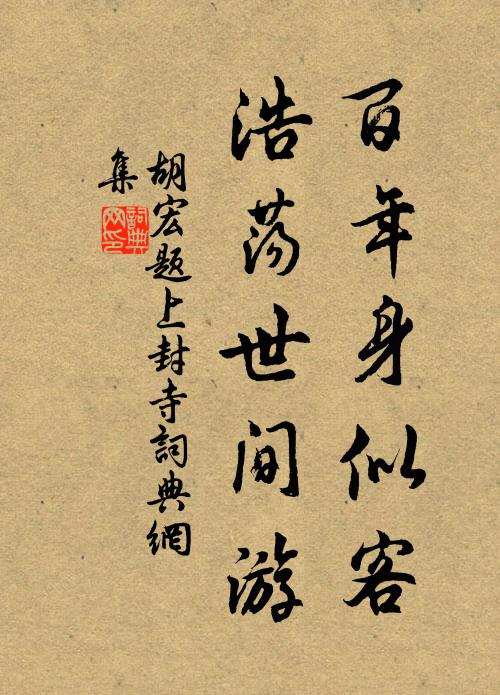 百年身似客
浩荡世间游
胡宏题上封寺詞典網
集
詞典
网印